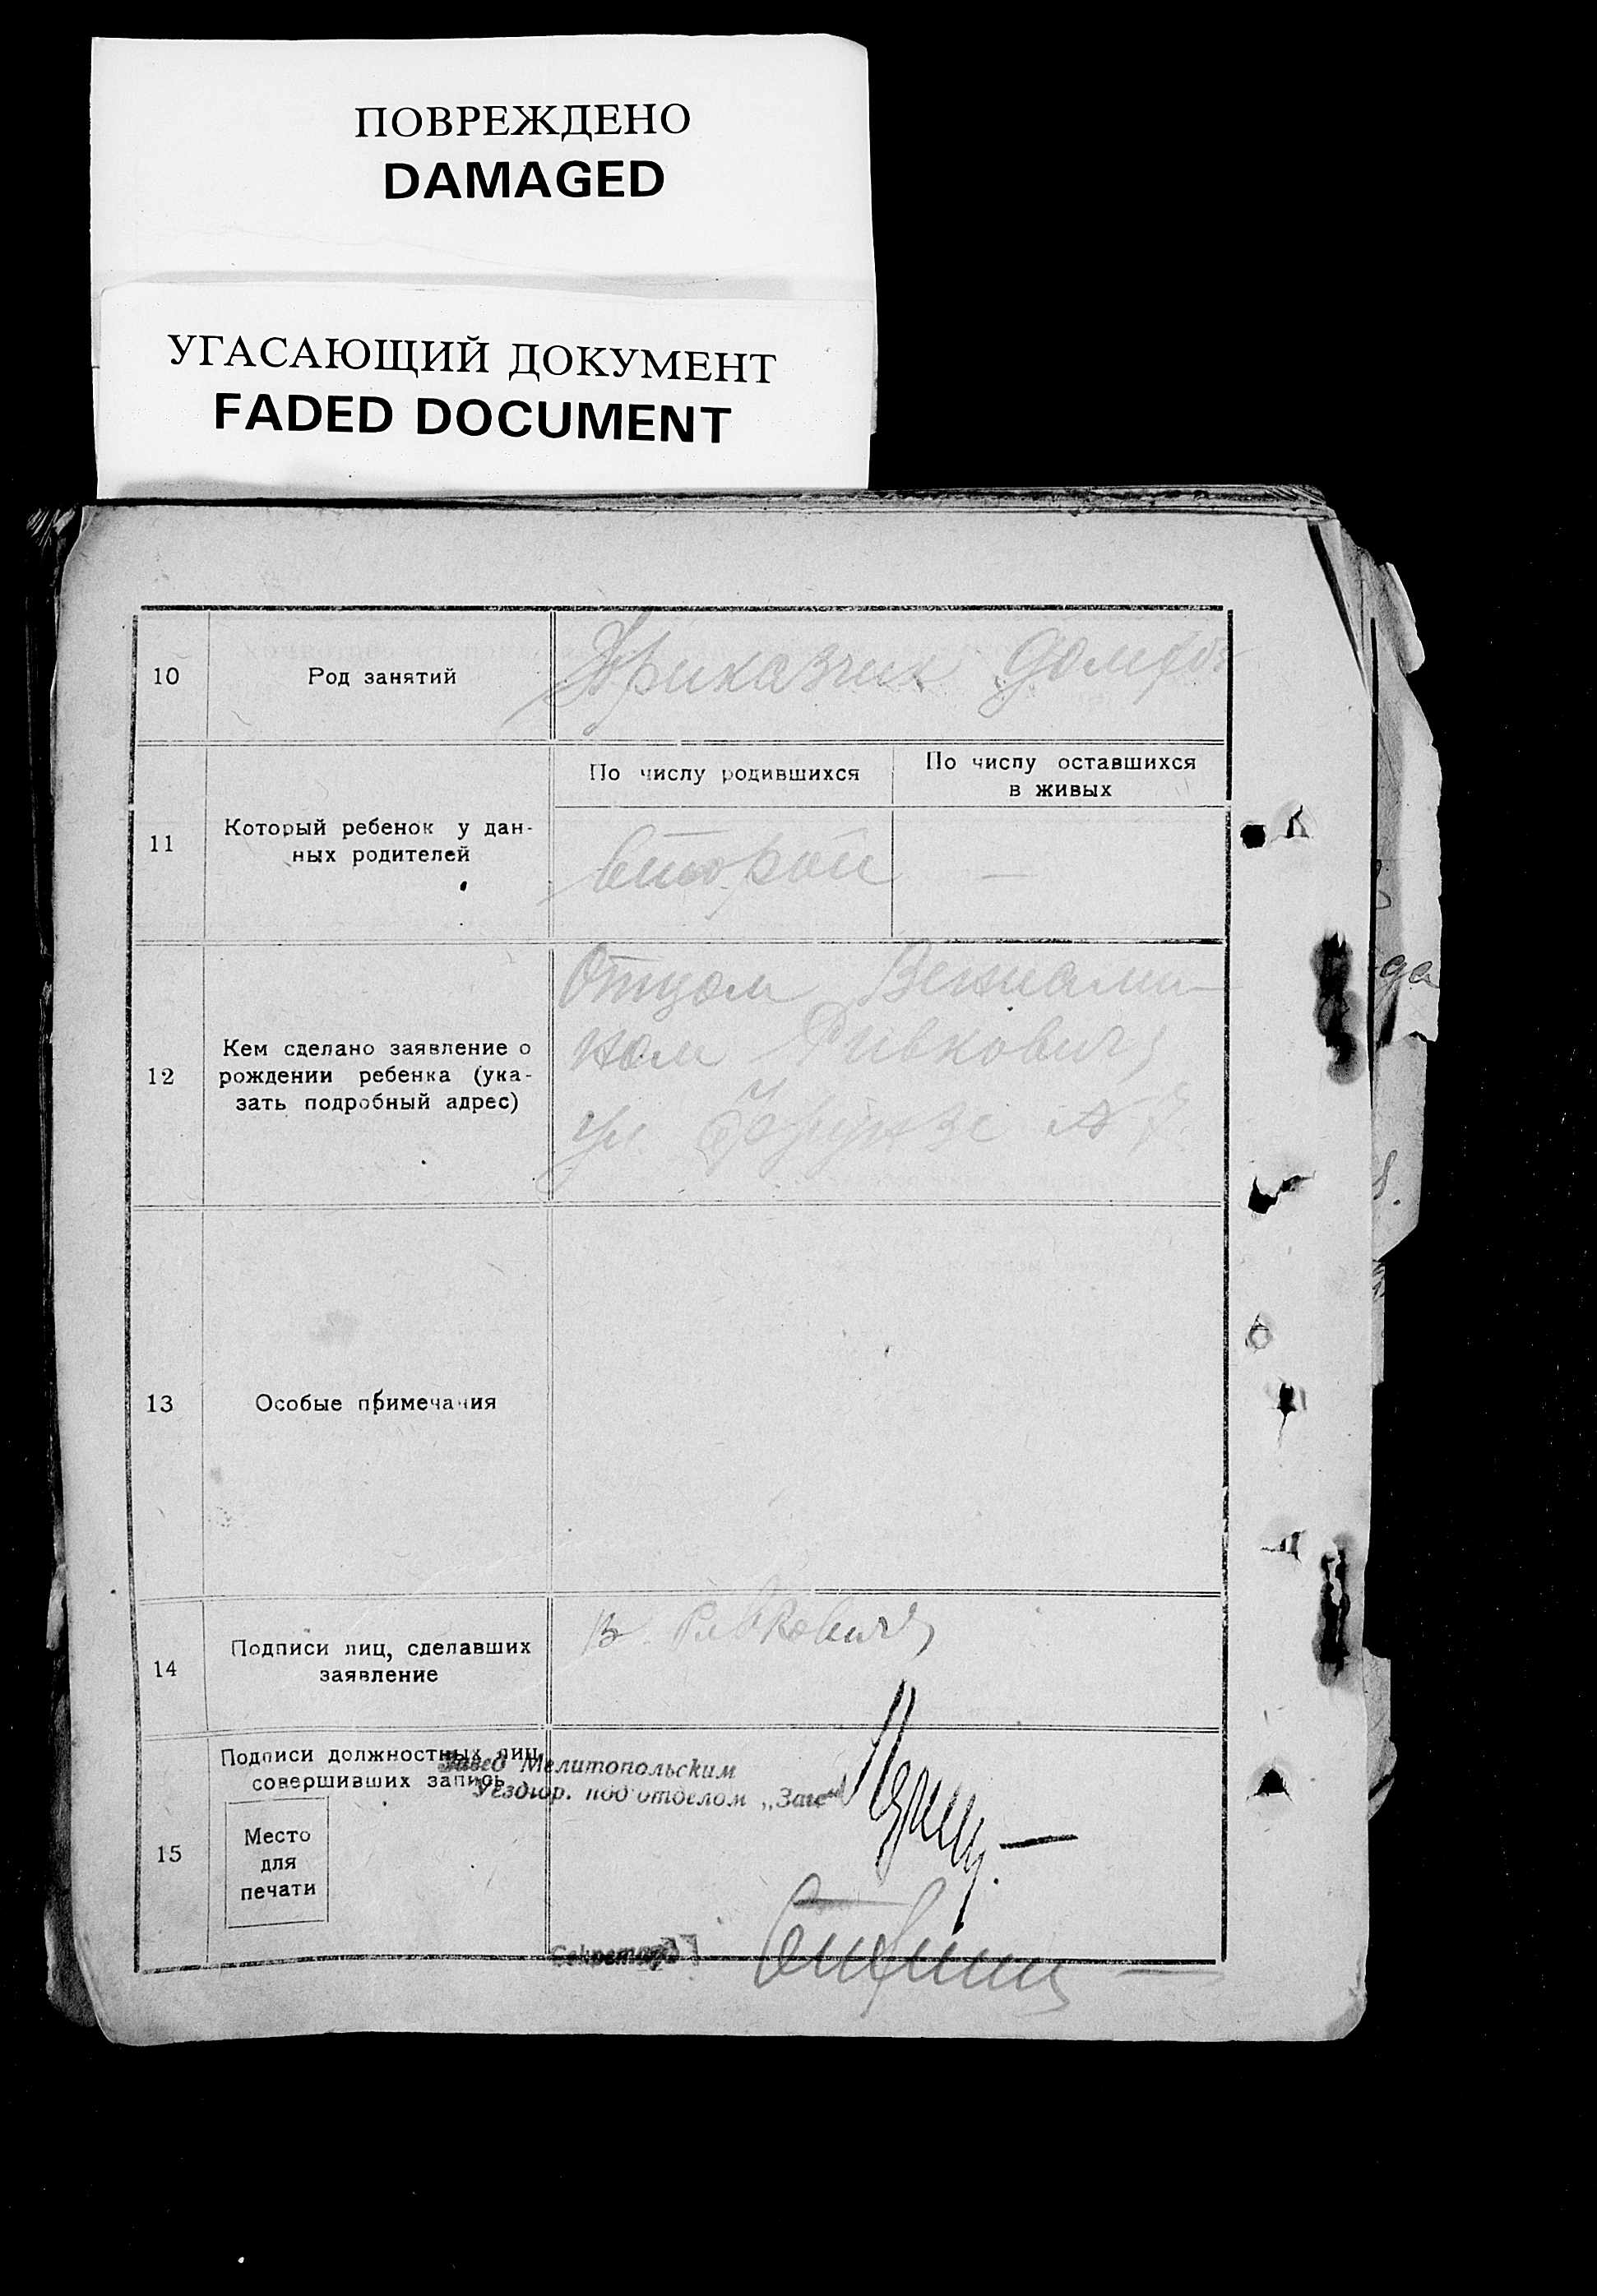 ПОВРЕЖДЕНО
DAMAGED
УГАСАЮЩИЙ ДОКУМЕНТ
FADED DOCUMENT
10
Род занятий
Приказчик
11
Который ребенок у дан-
ных родителей
По числу родившихся
По числу оставшихся
в живых
второй
—
12
Кем сделано заявление о
рождении ребенка (ука-
зать подробный адрес)
Отцом Вениами-
ном Ривкович
ул. Фрунзе №
да
13
Особые примечания
14
Подписи лиц, сделавших
заявление
В. Ривкович
15
Подписи должностных лиц,
совершивших запись
Завед Мелитопольским
Уездгор. подотделом „Загс"
Место
для
печати
Секретарь